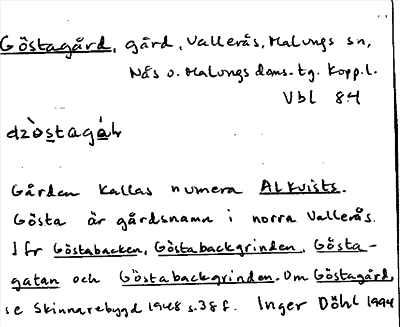 Göstagård, gård, Vallerås, Malungs sn,
Nås o. Malungs doms. tg. Kopp. l.
Vbl 84
dzòstagáh
Gården kallas numera Alkvists.
Gösta är gårdsnamn i norra Vallerås.
Jfr Göstabacken, Göstabackgrinden, Gösta-
gatan och Göstabackgrinden. Om Göstagård,
se Skinnarebygd 1948 s. 38 f. Inger Döhl 1994